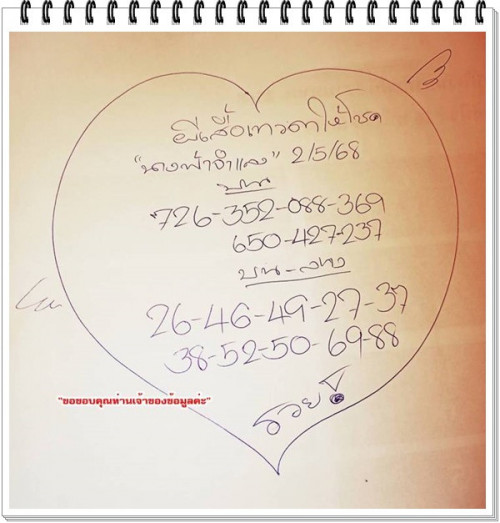 ผีเสื้อเทวดาให้โชค
"นางฟ้าจำแลง" 2/5/68
บน
726-352-088-369
650-427-237
บน-ล่าง
26-46-49-27-37
38-52-50-69-88
"ขอขอบคุณท่านเจ้าของข้อมูลค่ะ"
รวยๆ